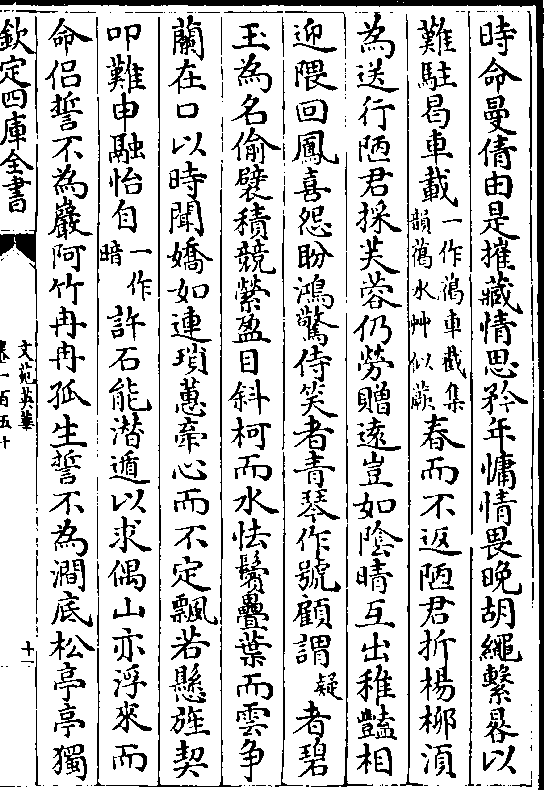 時命曼倩由是摧藏情思矜年慵情畏晚胡繩繫晷以
難駐曷車載一作藒車截集韻藒水艸似蕨春而不返陋君折楊柳湏
為送行陋君採芙蓉仍勞贈遠豈如陰晴互出稚豔相
迎隈回鳳喜怨盼鴻驚侍笑者青琴作號顧謂疑者碧
玉為名偷襞積競縈盈目斜柯而水怯鬢疊葉而雲争
蘭在口以時聞嬌如連瑣蕙牽心而不定飄若懸旌契
叩難由融怡自一作暗許石能潜遁以求偶山亦浮來而
命侣誓不為巖阿竹冉冉孤生誓不為澗底松亭亭獨
欽定四庫全書
文苑英華
卷一百五十
十一